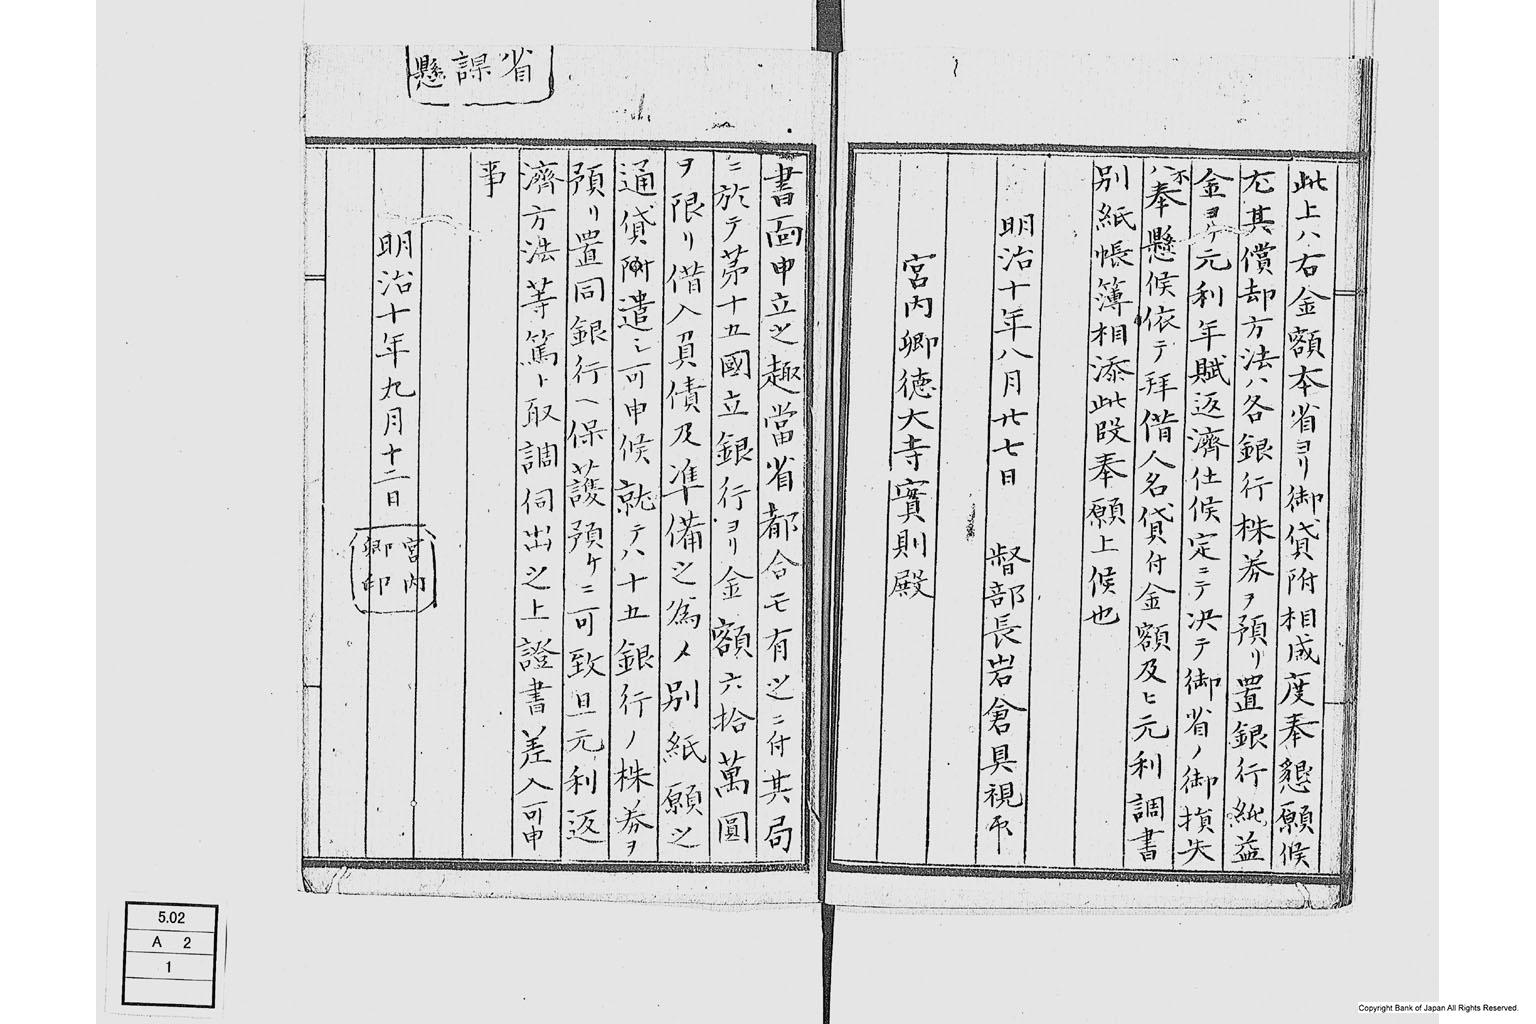 此上ハ右金額本省ヨリ御貸附相成度奉懇願候
尤其償却方法ハ各銀行株券ヲ預リ置銀行純益
金ヲ以テ元利年賦返済仕候定ニテ決テ御省ノ御損失
ハ不奉懸候依テ拜借人名貸付金額及ヒ元利調書
別紙帳簿相添此段奉願上候也
明治十年八月廿七日 督部長岩倉具視
宮内卿徳大寺實則殿
省課懸
書面申立之趣當省都合モ有之ニ付其局
ニ於テ茅十五國立銀行ヨリ金額六拾萬圓
ヲ限リ借入負債及準備之為メ別紙願之
通貸附遣シ可申候就テハ十五銀行ノ株券ヲ
預リ置同銀行ヘ保護預ケニ可致且元利返
濟方法等篤ト取調伺出之上證書差入可申
事
明治十年九月十二日
宮内
卿印
5.02
A 2
1
Copyright Bank of Japan All Rights Reserved.